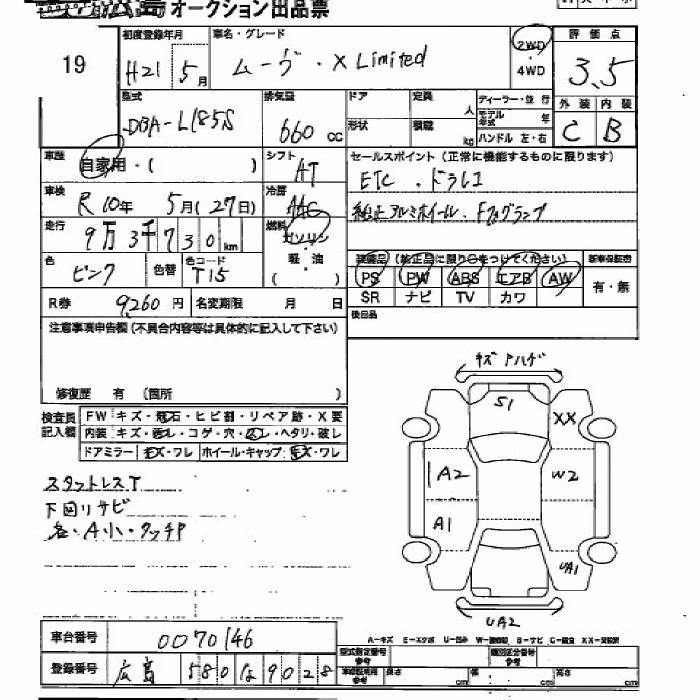 オークション出品票
19
初度登録年月
H21 5月
車名・グレード
ムーヴ・X Limited
2WD
・
4WD
評価点
3.5
型式
DBA-L185S
排気量
660 cc
ドア
定員 人
形状
積載 kg
ディーラー・並行
モデル年式 年
ハンドル 左・右
外装 内装
C B
車歴
自家用・( )
シフト
AT
セールスポイント (正常に機能するものに限ります)
ETC . ドラレコ
純正アルミホイール. Fフォグランプ
車検
R10年 5月(27日)
冷房
AAC
走行
9万3千730km
燃料
ガソリン
軽・油
( )
色
ピンク
色替
色コード
T15
装備品 (純正品に限り○をつけてください)
新車保証書
PS PW ABS エアB AW
SR ナビ TV カワ
有・無
R券 9,260円
名変期限 月 日
後日品
注意事項申告欄 (不具合内容等は具体的に記入して下さい)
修復歴 有 (箇所 )
検査員記入欄
FW キズ・飛石・ヒビ割・リペア跡・X要
内装 キズ・汚レ・コゲ・穴・凹レ・ヘタリ・破レ
ドアミラー キズ・ワレ ホイール・キャップ キズ・ワレ
スタットレスT
下回りサビ
各・A小・タッチP
キズ Pハゲ
S1
XX
A2
W2
A1
UA1
UA2
A-キズ E-エクボ U-凹み B-サビ C-腐食
車台番号 0070146
登録番号 広島 580 な 9028
型式指定番号 参考
類別区分番号 参考
長さ cm
幅 cm
高さ cm